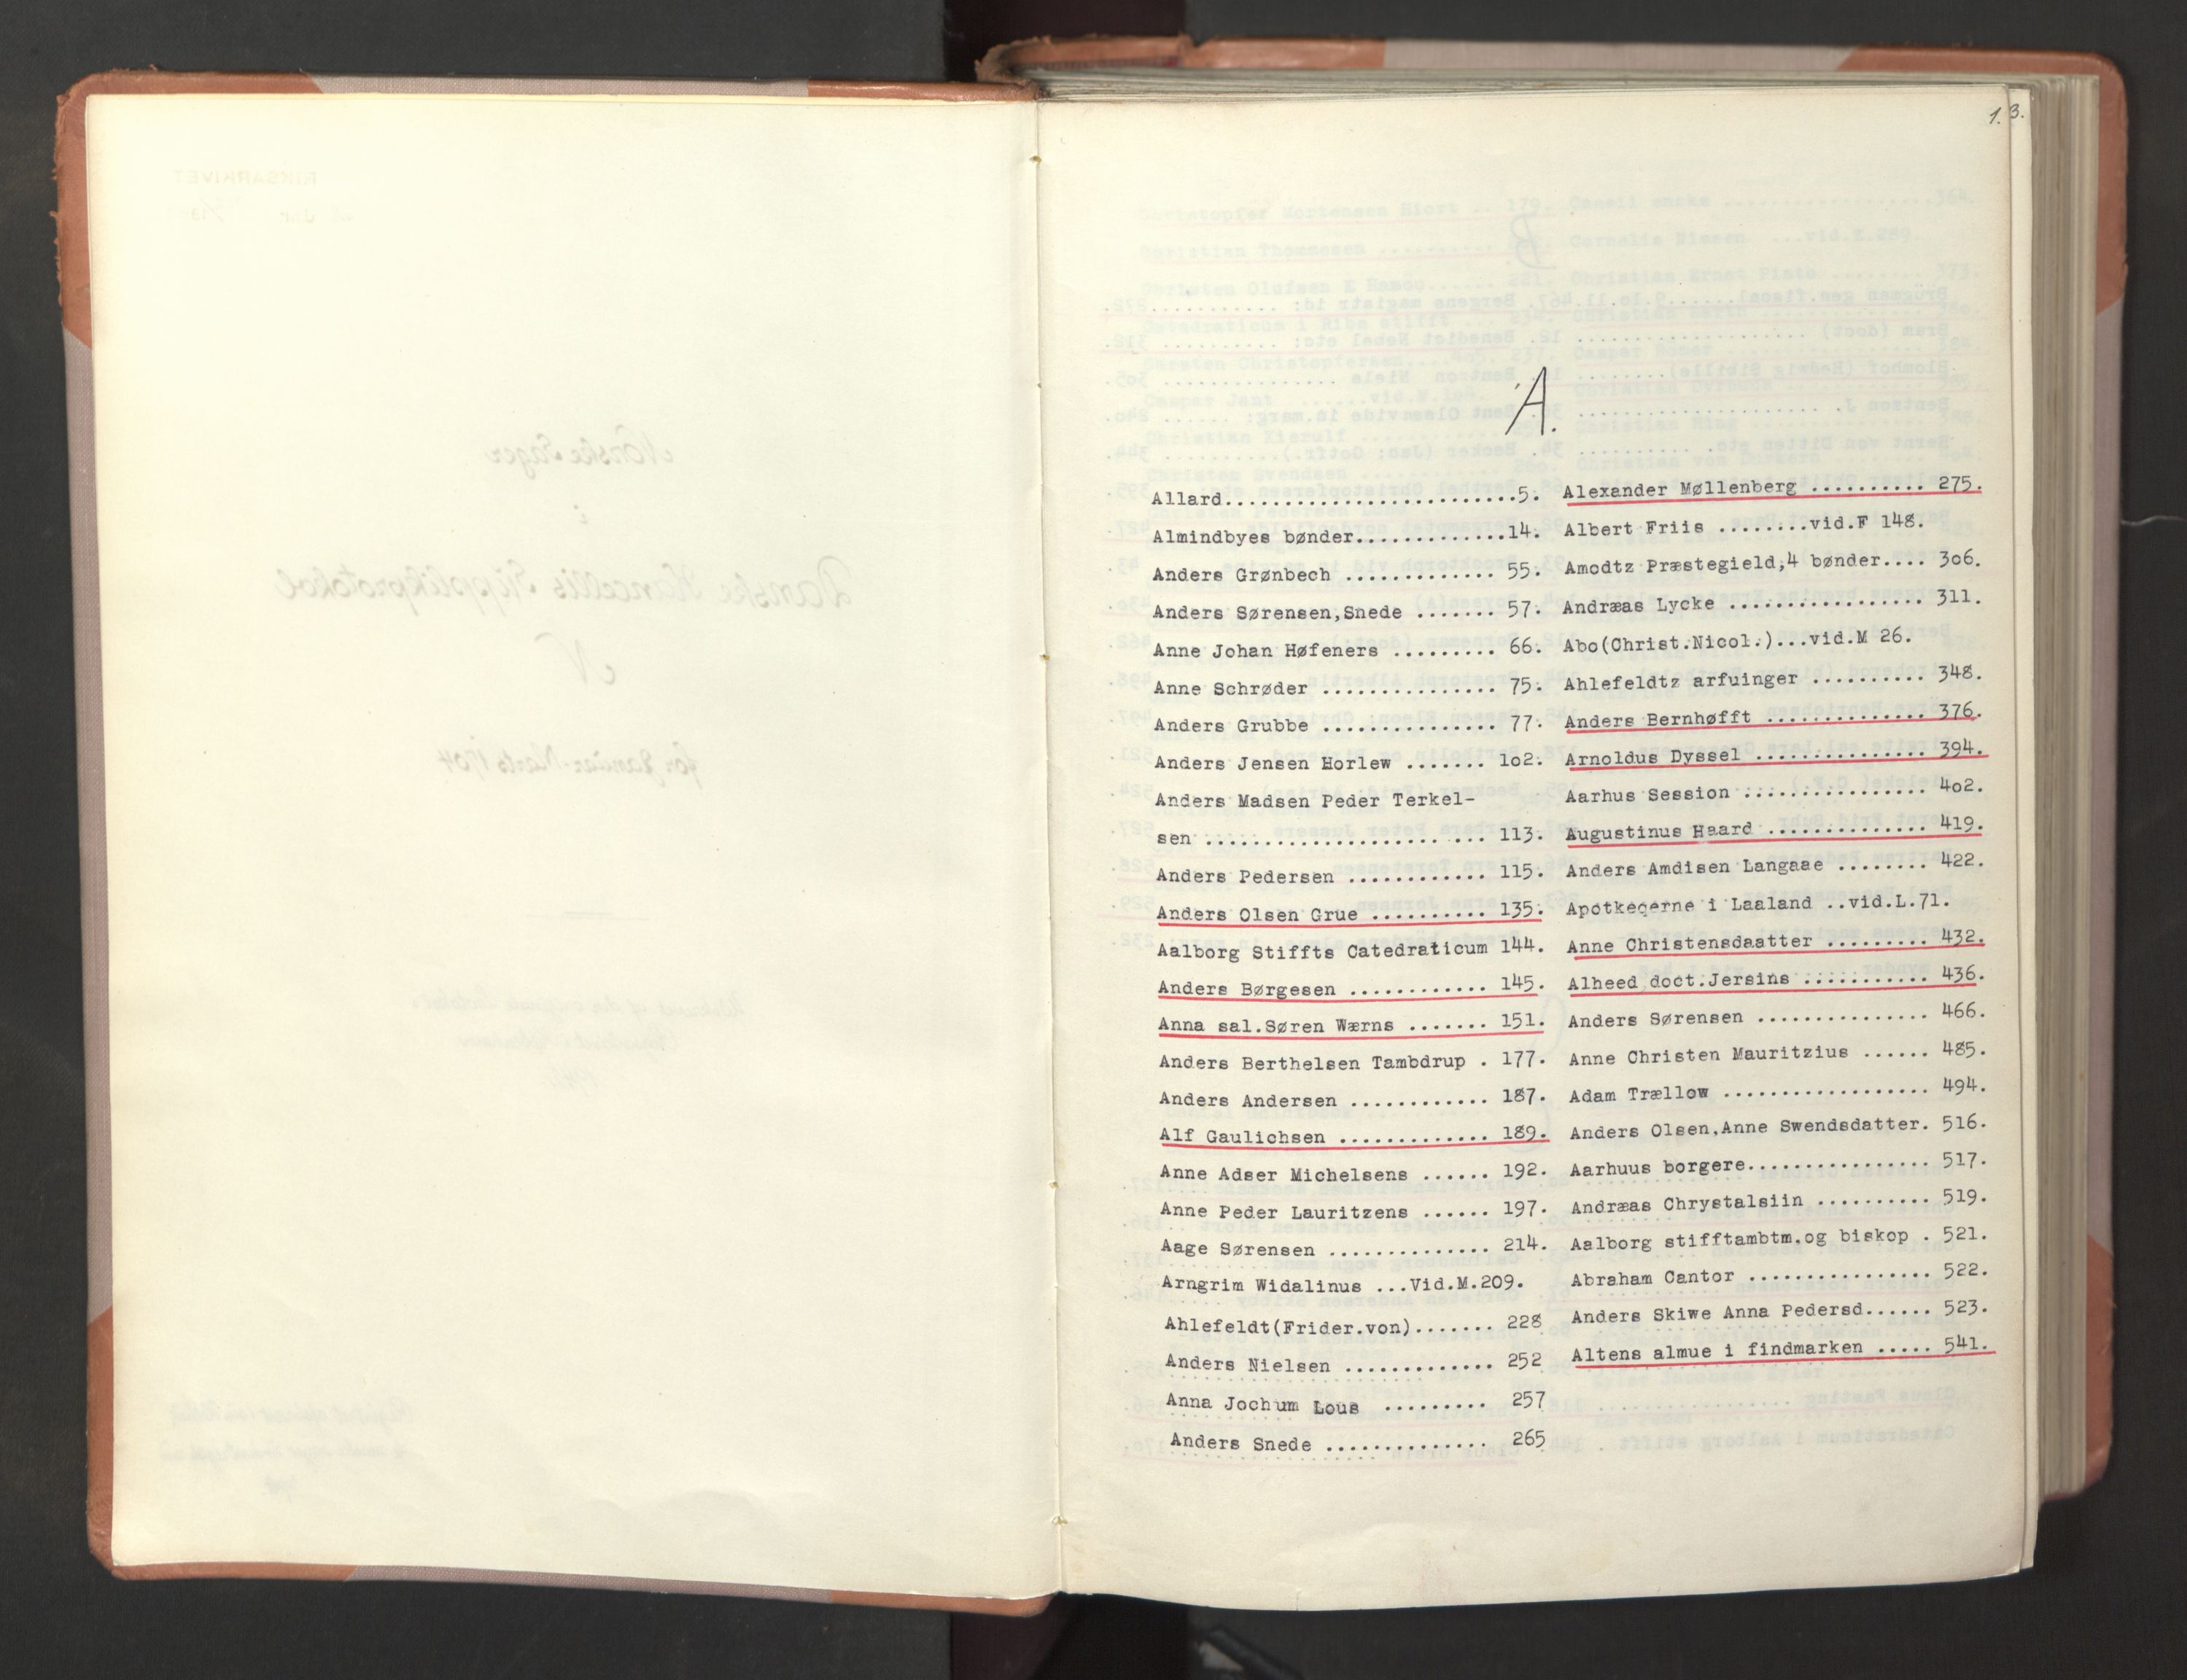 1. 3.
A.
Allard..........................5.
Almindbyes bønder.............14.
Anders Grønbech ............. 55.
Anders Sørensen,Snede ....... 57.
Anne Johan Høfeners ......... 66.
Anne Schrøder ............... 75.
Anders Grubbe ............... 77.
Anders Jensen Horlew ....... 1o2.
Anders Madsen Peder Terkel-
sen ........................ 113.
Anders Pedersen ............ 115.
Anders Olsen Grue .......... 135.
Aalborg Stiffts Catedraticum 144.
Anders Børgesen ............ 145.
Anna sal.Søren Wærns ....... 151.
Anders Berthelsen Tambdrup . 177.
Anders Andersen ............ 187.
Alf Gaulichsen ............. 189.
Anne Adser Michelsens ...... 192.
Anne Peder Lauritzens ...... 197.
Aage Sørensen .............. 214.
Arngrim Widalinus ...Vid.M.209.
Ahlefeldt(Frider.von)....... 228
Anders Nielsen ............. 252
Anna Jochum Lous ......... 257
Anders Snede .............. 265
Alexander Møllenberg .......... 275.
Albert Friis ........vid.F 148.
Amodtz Præstegield,4 bønder.... 3o6.
Andræas Lycke ................. 311.
Abo(Christ.Nicol.)...vid.M 26.
Ahlefeldtz arfuinger .......... 348.
Anders Bernhøfft .............. 376.
Arnoldus Dyssel ............... 394.
Aarhus Session ................ 4o2.
Augustinus Haard .............. 419.
Anders Amdisen Langaae ........ 422.
Apotkeqerne i Laaland ..vid.L.71.
Anne Christensdaatter ......... 432.
Alheed doct.Jersins ........... 436.
Anders Sørensen ............... 466.
Anne Christen Mauritzius ...... 485.
Adam Trællow .................. 494.
Anders Olsen,Anne Swendsdatter. 516.
Aarhuus borgere................ 517.
Andræas Chrystalsiin .......... 519.
Aalborg stifftambtm.og biskop . 521.
Abraham Cantor ................ 522.
Anders Skiwe Anna Pedersd...... 523.
Altens almue i findmarken ..... 541.